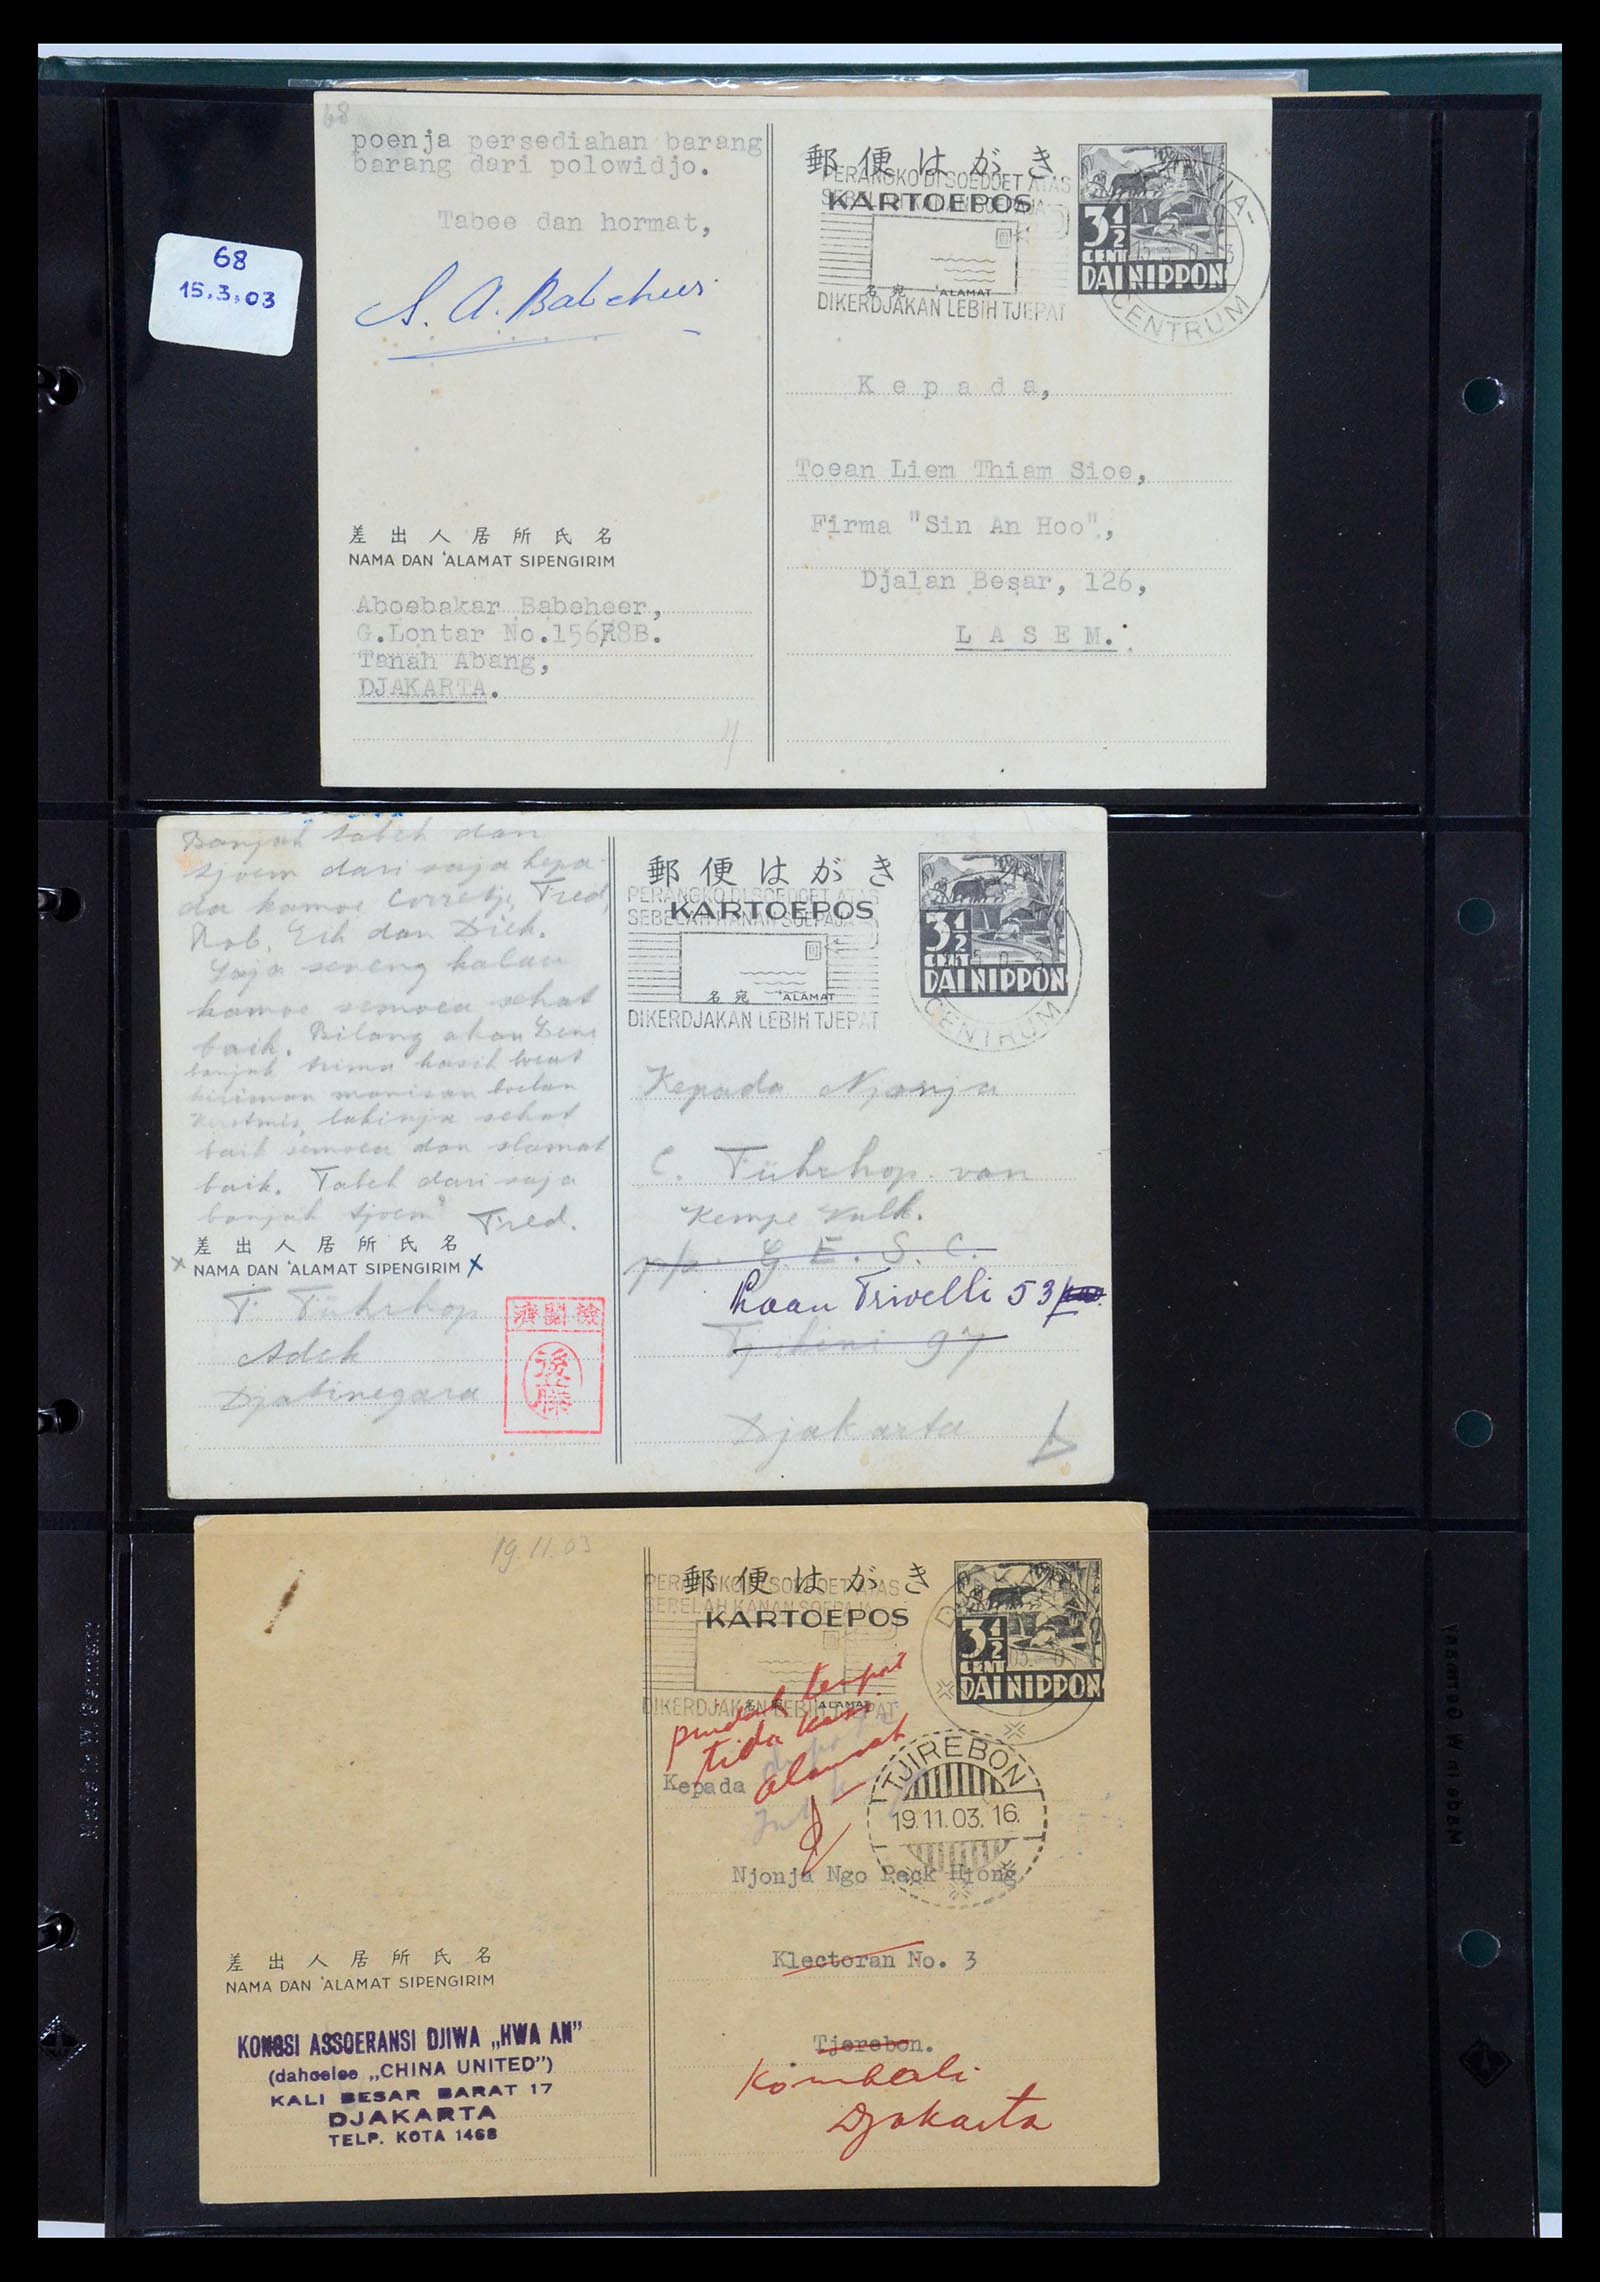 68
poenja persediahan barang
barang dari polowidjo.
Tabee dan hormat,
S. A. Babeheer
68
15.3.03
差出人居所氏名
NAMA DAN 'ALAMAT SIPENGIRIM
Aboebakar Babeheer,
G.Lontar No.156R8B.
Tanah Abang,
DJAKARTA.
郵便はがき
PERANGKO DI SOEDOET ATAS
KARTOEPOS
3½
CENT
DAI NIPPON
名宛 'ALAMAT
DIKERDJAKAN LEBIH TJEPAT
CENTRUM
Kepada,
Toean Liem Thiam Sioe,
Firma "Sin An Hoo",
Djalan Besar, 126,
LASEM.
Banjak tabeh dan
tjoem dari saja kepa-
da kamoe Corretje, Fred,
Rob, Eih dan Dieh.
Saja seneng kalau
kamoe semoea sehat
baik. Bilang akan
banjak trima kasih boeat
kiriman manisan boelan
Kerstmis, lakinja sehat
baik semoea dan slamat
baik. Tabeh dari saja
banjak tjoem Fred.
差出人居所氏名
x NAMA DAN 'ALAMAT SIPENGIRIM x
F. Führhop
Adek
Djatinegara
檢閲濟
後藤
郵便はがき
PERANGKO DI SOEDOET ATAS
SEBELAH KANAN SOEPAJA
KARTOEPOS
3½
CENT
DAI NIPPON
名宛 'ALAMAT
DIKERDJAKAN LEBIH TJEPAT
CENTRUM
Kepada Njonja
C. Führhop van
Kempe Valk.
p/a. G. E. S. C.
Laan Trivelli 53
Tjikini 97
Djakarta
19.11.03
郵便はがき
PERANGKO DI SOEDOET ATAS
SEBELAH KANAN SOEPAJA
KARTOEPOS
3½
CENT
DAI NIPPON
名宛 'ALAMAT
DIKERDJAKAN LEBIH TJEPAT
pindah tempat
tida kasi
alamat
TJIREBON
19.11.03. 16.
Kepada
Njonja Ngo Peck Hiong
Klectoran No. 3
Tjerebon.
Kombali
Djakarta
差出人居所氏名
NAMA DAN 'ALAMAT SIPENGIRIM
KONGSI ASSOERANSI DJIWA „HWA AN"
(dahoeloe „CHINA UNITED")
KALI BESAR BARAT 17
DJAKARTA
TELP. KOTA 1468
Made in W. Germany
Made in W Germany